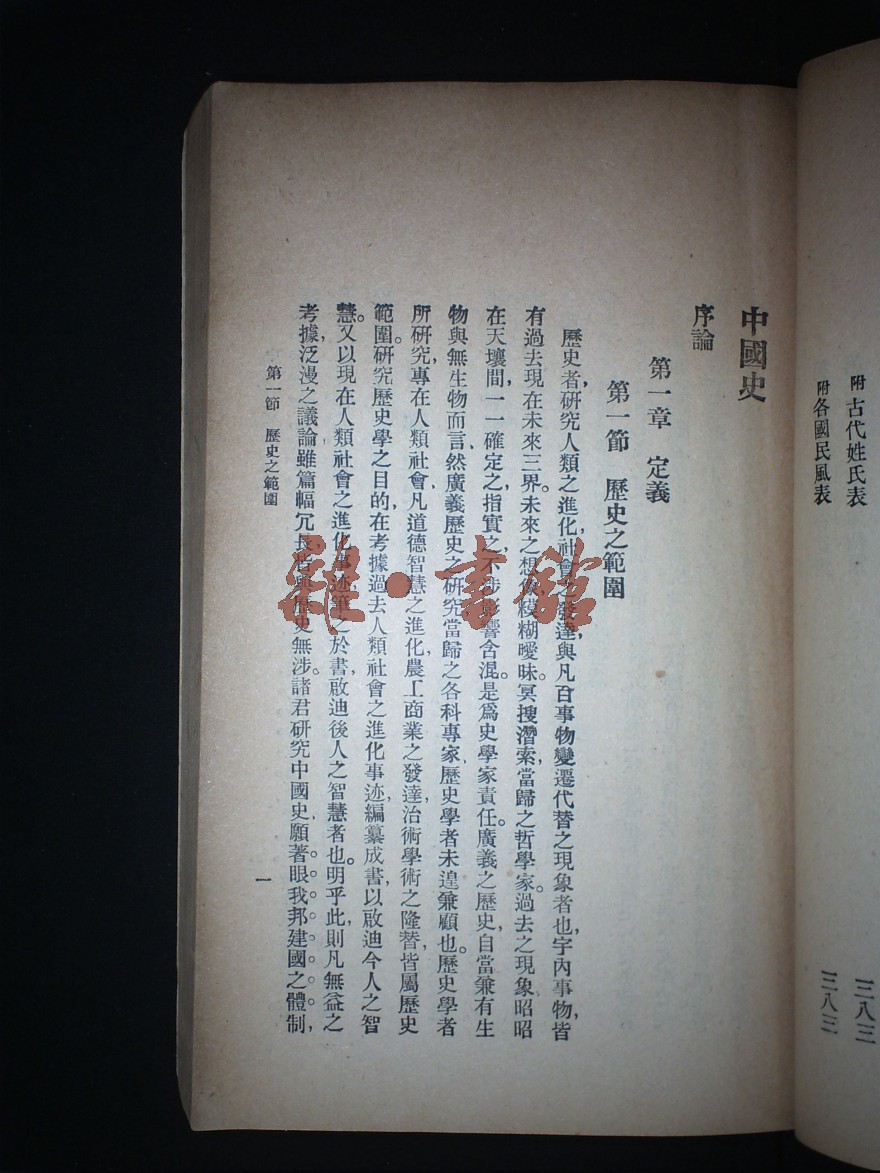 附古代姓氏表 三八三
附各國民風表 三八三
中國史
序論
第一章 定義
第一節 歷史之範圍
歷史者，研究人類之進化，社會之發達，與凡百事物變遷代替之現象者也，宇內事物，皆
有過去現在未來三界。未來之想像，糢糊曖昧，冥搜潛索，當歸之哲學家。過去之現象昭昭
在天壤間，一一確定之，指實之，不涉影響含混，是爲史學家責任。廣義之歷史，自當兼有生
物與無生物而言，然廣義歷史之研究當歸之各科專家，歷史學者未遑兼顧也。歷史學者
所研究，專在人類社會，凡道德智慧之進化，農工商業之發達，治術學術之隆替，皆屬歷史
範圍。研究歷史學之目的，在考據過去人類社會之進化事迹，編纂成書，以啟迪今人之智
慧。又以現在人類社會之進化事迹，筆之於書，啟迪後人之智慧者也。明乎此，則凡無益之
考據，泛漫之議論，雖篇幅冗長，皆與歷史無涉。諸君研究中國史，願著眼我邦建國之體制，
第一節 歷史之範圍
一
雜·書館